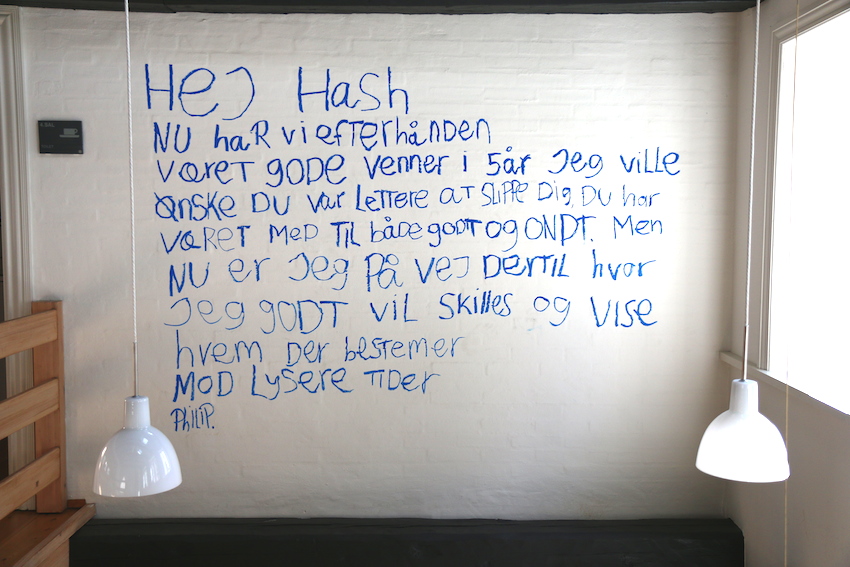 Hej Hash
NU haR vi efTerhåNDEN
været gode venner i 5år Jeg ville
ønske DU var LeTTere aT SLIPPe Dig, DU har
væreT MeD TIL båDe goDT og ONDT. Men
NU er Jeg På vej DerTIL hvor
Jeg goDT vil skilles og vise
hvem Der besTemer
MoD Lysere TiDer
PhiliP.